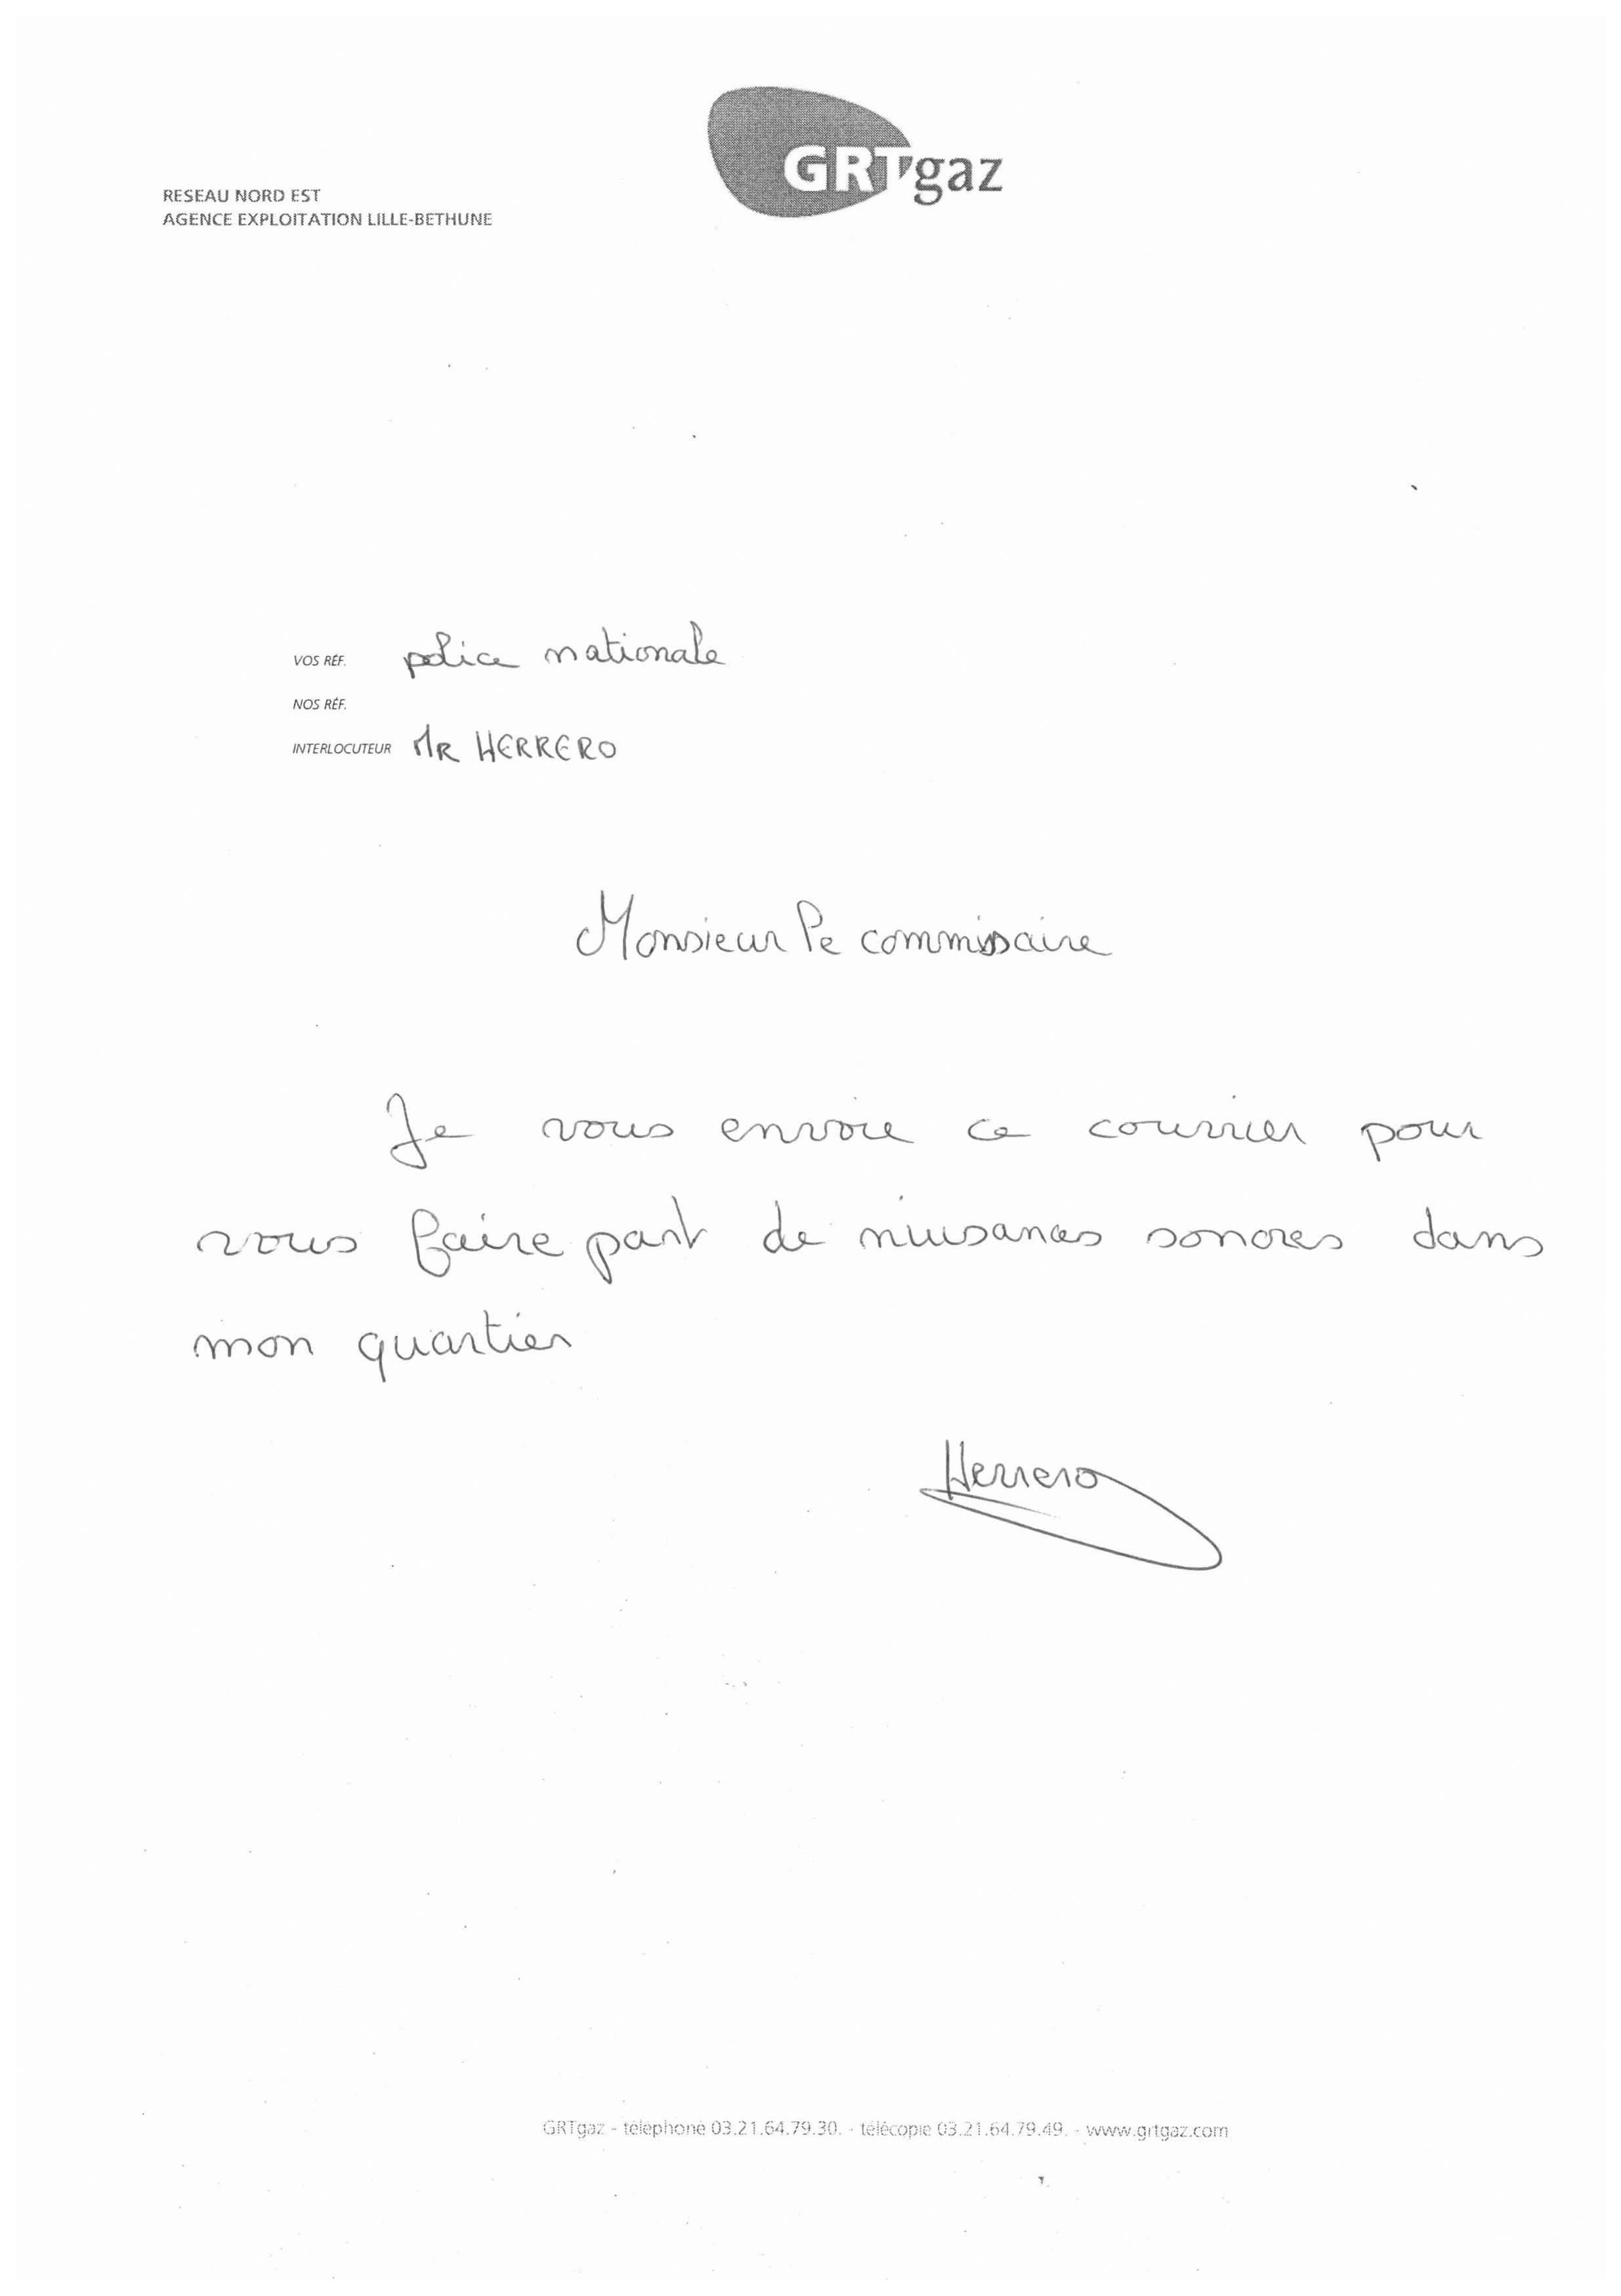 GRTgaz
RESEAU NORD EST
AGENCE EXPLOITATION LILLE-BETHUNE
VOS RÉF. police nationale
NOS RÉF.
INTERLOCUTEUR MR HERRERO
Monsieur le commissaire
Je vous envoie ce courrier pour
vous faire part de nuisances sonores dans
mon quartier
Herrero
GRTgaz - téléphone 03.21.64.79.30. - télécopie 03.21.64.79.49. - www.grtgaz.com